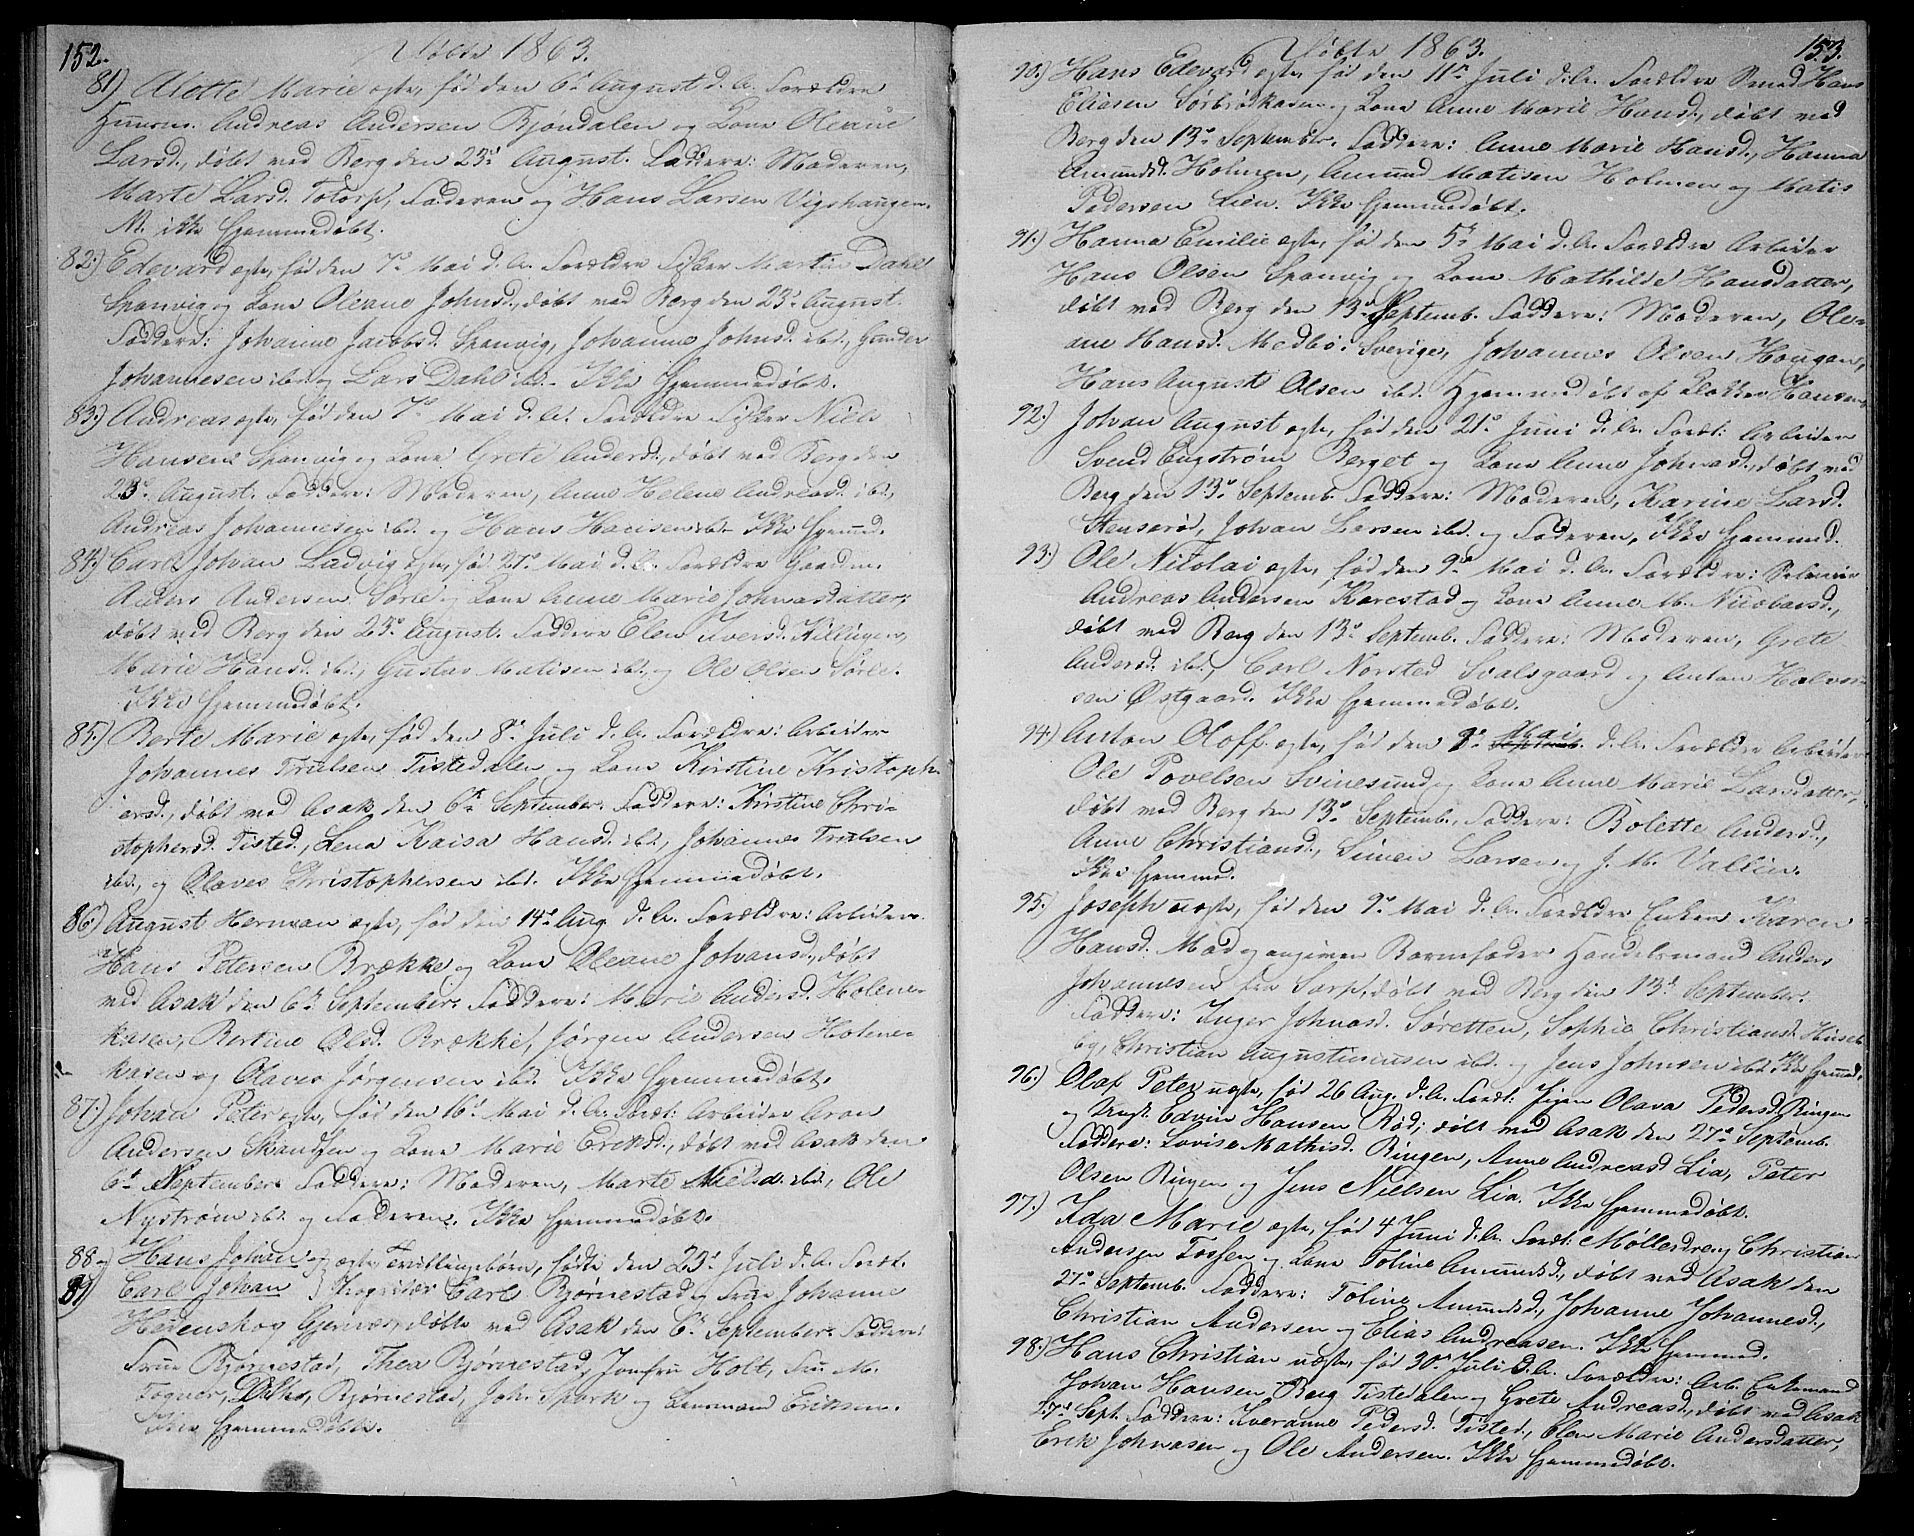 152.
Døbte 1863.
81) Alette Marie ægte, fød den 6te August d. A. Forældre
Huusm. Andreas Andersen Bjøndalen og Kone Oleane
Larsd., døbt ved Berg den 23d August. Faddere: Moderen,
Marte Larsd. Totorp, Faderen og Hans Larsen Vigshaugen.
N. ikke hjemmedøbt.
82.) Edevard ægte, fød den 7de Mai d. A. Forældre Fisker Martin Dahl
Sponvig og Kone Oleane Johnsd., døbt ved Berg den 23d August.
Faddere: Johanne Jacobsd. Sponvig, Johanne Johnsd. ibd., Gunder
Johannesen ibd. og Lars Dahl ibd. Ikke hjemmedøbt.
83.) Andreas ægte, fød den 7de Mai d. A. Forældre Fisker Niels
Hansen Sponvig og Kone Grete Andersd., døbt ved Berg den
23d August. Faddere: Moderen, Anne Helene Andreasd. ibd.,
Andreas Johannesen ibd. og Hans Hansen ibd. Ikke hjemmed.
84.) Carl Johan Ludvig ægte, fød 27de Mai d. A. Forældre Gaardm.
Anders Andersen Sørle og Kone Anne Marie Johnasdatter,
døbt ved Berg den 23d August. Faddere Elen Iversd. Killingen,
Marie Hansd. ibd., Gustav Matisen ibd., og Ole Olsen Sørle.
Ikke hjemmedøbt.
85.) Berte Marie ægte, fød den 8de Juli d. A. Forældre: Arbeider
Johannes Trulsen Tistedalen og Kone Kirstine Kristoph-
ersd., døbt ved Asak den 6te September. Faddere: Kirstine Chri-
stophersd. Tisted., Lena Kaisa Hansd. ibd., Johannes Trulsen
ibd., og Olaves Christophersen ibd. Ikke hjemmedøbt.
86.) August Herman ægte, fød den 14de Aug. d. A. Forældre: Arbeider
Hans Petersen Brække og Kone Oleane Johansd., døbt
ved Asak den 6te September. Faddere: Marie Andersd. Holene-
kasen, Bertine Olsd. Brække, Jørgen Andersen Holene-
kasen og Olaves Jørgensen ibd. Ikke hjemmedøbt.
87.) Johan Peter ægte, fød den 16de Mai d. A. Foræl: Arbeider Aron
Andersen Skandsen og Kone Marie Eriksd., døbt ved Asak den
6te September. Faddere: Moderen, Marte Nielsd. ibd., Ole
Nystrøm ibd. og Faderen. Ikke hjemmedøbt.
88 og Hans Johan og ægte Tvillingebørn, fødte den 23d Juli d. A. Foræl.
89) Carl Johan } Kapitær Carl Bjørnestad og Frue Johanne
Hedenskog Gjernæs, døbte ved Asak den 6te September. Faddere:
Frue Bjørnestad, Thea Bjørnestad, Jomfru Holt, Fru M.
Fogner, Bjørnestad, Joh. Spork og Lensmand Eriksen.
Ikke hjemmedøbte.
153.
Døbte 1863.
90.) Hans Edevard ægte, fød den 11te Juli d. A. Forældre Smed Hans
Eliasen Sørbrødkasen og Kone Anne Marie Hansd., døbt ved
Berg den 13de September. Faddere: Anne Marie Hansd., Hanna
Amundsd. Holmen, Amund Matisen Holmen og Matis
Pedersen Lien. Ikke hjemmedøbt.
91.) Hanna Emilie ægte, fød den 5te Mai d. A. Forældre Arbeider
Hans Olsen Sponvig og Kone Mathilde Hansdatter,
døbt ved Berg den 13de Septemb. Faddere: Moderen, Ole-
ane Hansd. Medbø i Sverige, Johannes Olsen Hougen,
Hans August Olsen ibd. Hjemmedøbt af Klokker Hansen.
92.) Johan August ægte, fød den 21de Juni d. A. Foræl: Arbeider
Svend Engstrøm Berget og Kone Anne Johnasd., døbt ved
Berg den 13de Septemb. Faddere: Moderen, Karine Larsd.
Stenserød, Johan Larsen ibd. og Faderen, Ikke hjemmed.
93.) Ole Nicolai ægte, fød den 9de Mai d. A. Forældre: Selveier
Andreas Andersen Karestad og Kone Anne M. Nicolaisd.,
døbt ved Berg den 13de Septemb. Faddere: Moderen, Grete
Andersd. ibd., Carl Norsted Svalsgaard og Anton Halvor-
sen Østgaard. Ikke hjemmedøbt.
94) Anton Oloff ægte, fød den 9de Mai d. A. Forældre Arbeider
Ole Povelsen Svinesund og Kone Anne Marie Larsdatter,
døbt ved Berg den 13de Septemb., Faddere: Bolette Andersd.,
Anne Christiansd., Simen Larsen og J. M. Vallin.
Ikke hjemmed.
95.) Joseph uægte, fød den 9de Mai d. A. Forældre Enken Karen
Hansd. Mod og angiven Barnefader Handelsmand Anders
Johannesen fra Sarp, døbt ved Berg den 13de September.
Faddere: Inger Johnasd. Søretten, Sophie Christiansd. Huseb-
og, Christian Augustinusen ibd. og Jens Johnsen ibd. Ikke hjemmed.
96.) Olaf Peter uægte, fød 26 Aug. d. A. Foræl: Pigen Olava Pedersd. Ringen
og Ungk. Edvin Hansen Rød, døbt ved Asak den 27de Septemb.
Faddere: Lovise Mathisd. Ringen, Anne Andreasd Lia, Peter
Olsen Ringen og Jens Nielsen Lia. Ikke hjemmedøbt.
97.) Ida Marie ægte, fød 4 Juni d. A. Foræl: Møllerdreng Christian
Andersen Fossen og Kone Toline Amundsd., døbt ved Asak den
27de Septemb. Faddere: Toline Amundsd., Johanne Johannesd.,
Christian Andersen og Elias Andreasen. Ikke hjemmed.
98.) Hans Christian uægte, fød 30te Juli d. A. Forældre: Arb. Enkemand
Johan Hansen Berg Tistedalen og Grete Andreasd., døbt ved Asak
27de Sept. Faddere: Iveranne Pedersd. Tisted., Elen Marie Andersdatter,
Erik Johnasen og Ole Andersen. Ikke hjemmedøbt.